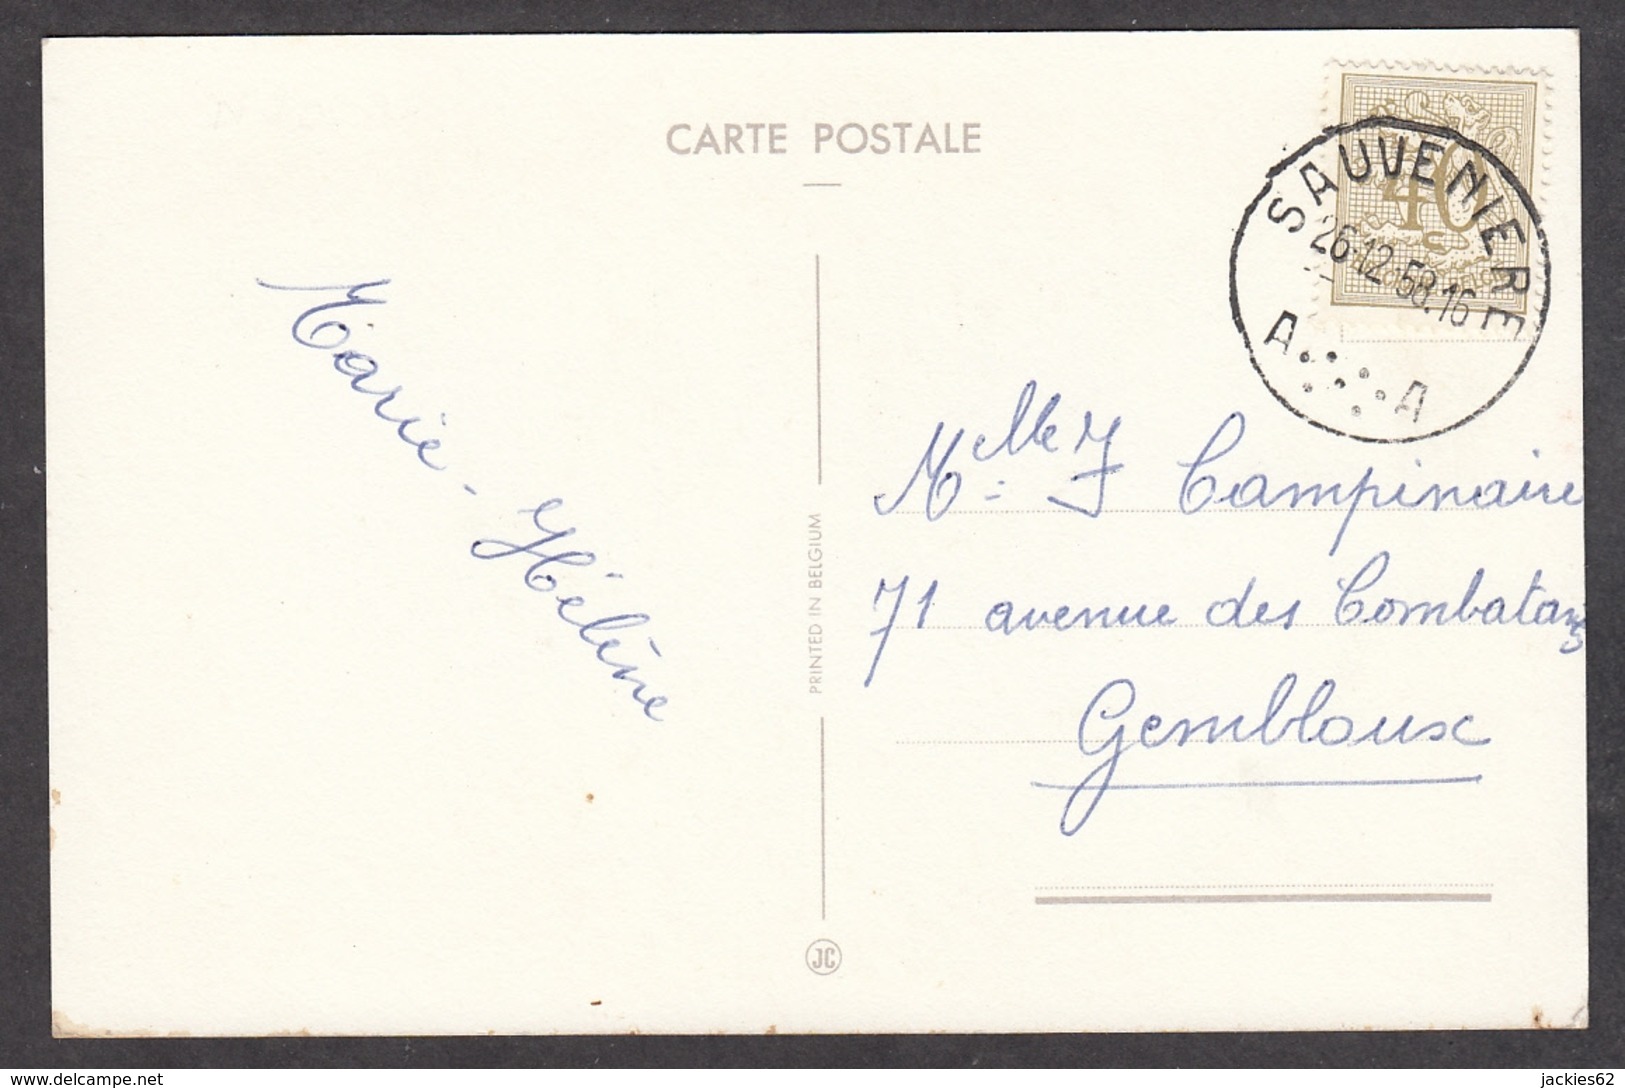 CARTE POSTALE
40
c
SAUVENIERE
26-12-58.16
A A
Marie-Hélène
Melle J Campinaire
71 avenue des Combatans
Gembloux
PRINTED IN BELGIUM
JC
www.delcampe.net
jackies62